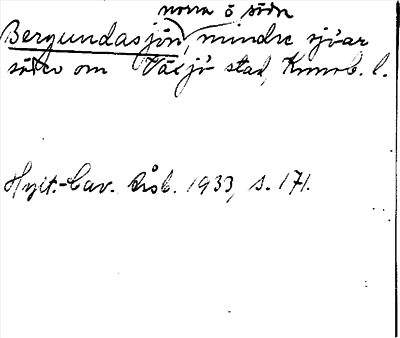 norra o södra
Bergundasjön, mindre sjöar
söder om Växjö stad, Kronob. l.
Hylt.-Cav. Årsb. 1933, s. 171.